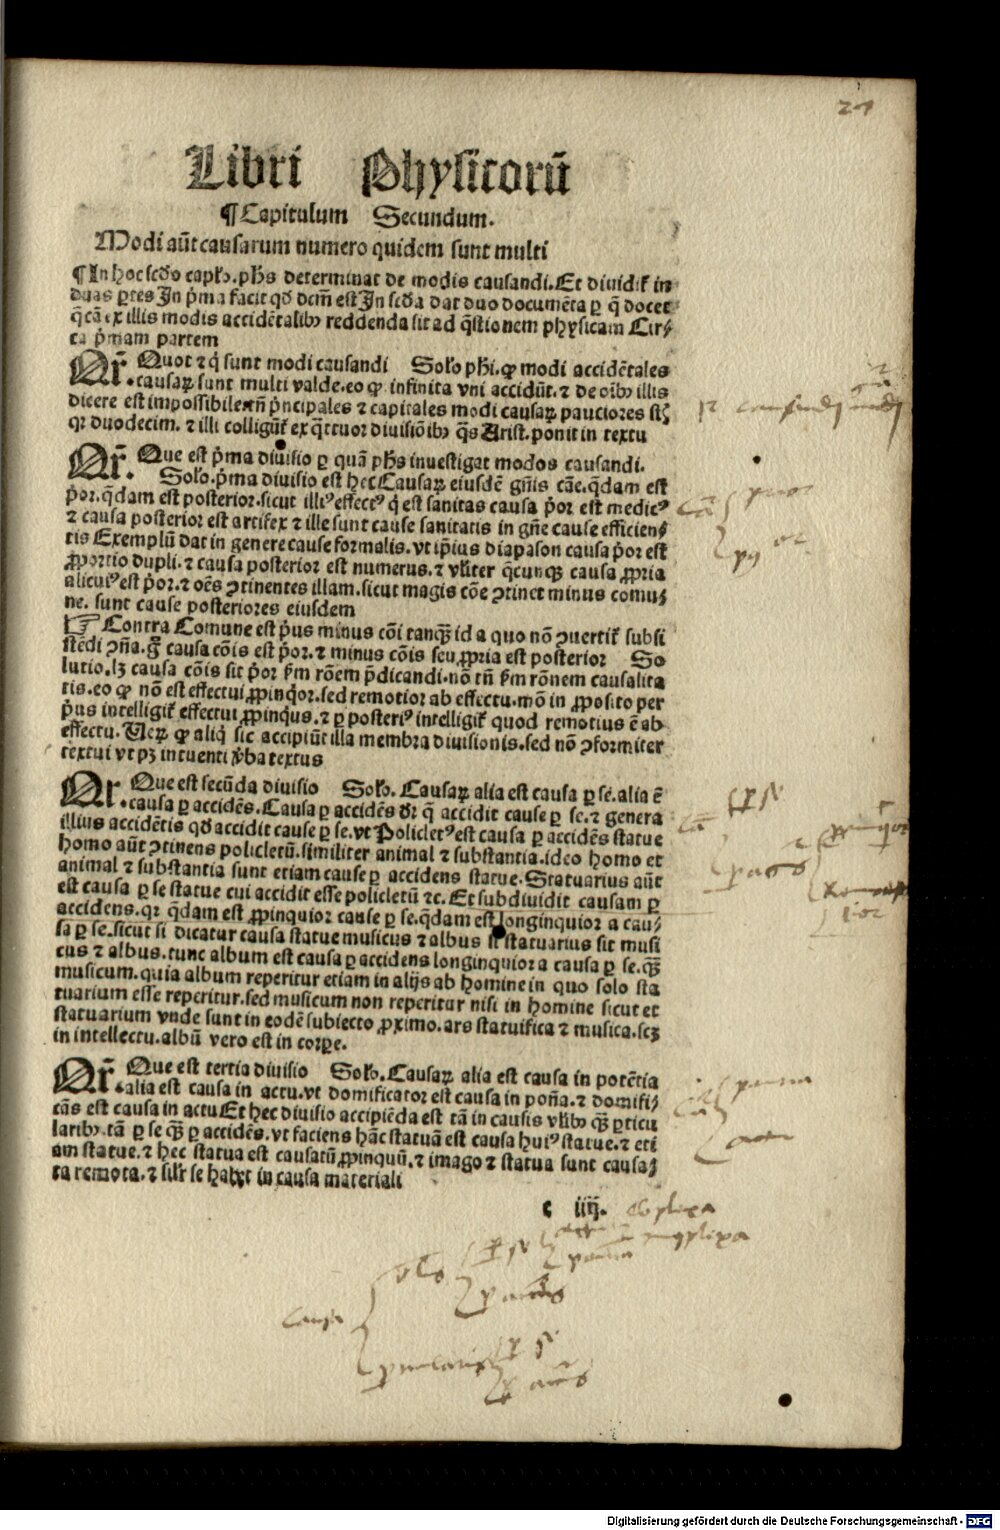 Libri Physicorū
¶Capitulum Secundum.
Modi aūt causarum numero quidem sunt multi
¶In hoc scd̄o capł'o. ph̄s determinat de modis causandi. Et diuidit̄ in
duas ꝑtes In p̄ma facit qd̄ dcm̄ est In scd̄a dat duo documēta ꝑ q̄ docet
q̄ cā ex illis modis accidētalibꝫ reddenda sit ad q̄stionem physicam Cir⸗
ca p̄mam partem
Qr̄. Quot ⁊ q̇ sunt modi causandi Solꝰo phi. ꝙ modi accidētales
causaꝝ sunt multi valde. eo ꝙ infinita vni accidūt. ⁊ de oībꝫ illis
dicere est impossibile. tn̄ p̄ncipales ⁊ capitales modi causaꝝ pauciores st̄⸗
qr duodecim. ⁊ illi colligūt̄ ex q̄ttuor diuisiōibꝫ q̄s Arist. ponit in textu
Qr̄. Que est p̄ma diuisio ꝑ quā ph̄s inuestigat modos causandi.
Solꝰo. p̄ma diuisio est hec Causaꝝ eiusdē gn̄is cāe. q̄dam est
p̄or. q̄dam est posterior. sicut illiꝰ effectꝰ q̇ est sanitas causa p̄or est medicꝰ
⁊ causa posterior est artifex ⁊ ille sunt cause sanitatis in gn̄e cause efficien⸗
tis Exemplū dat in genere cause formalis. vt ip̄ius diapason causa p̄or est
ꝓportio dupli. ⁊ causa posterior est numerus. ⁊ vlr̄iter q̄cunqꝫ causa ꝓpria
alicuiꝰ est p̄or. ⁊ oēs ꝯtinentes illam. sicut magis cōe ꝯtinet minus comu⸗
ne. sunt cause posteriores eiusdem
☞ Contra Comune est p̄us minus cōi tanqꝫ id a quo nō ꝯuertit̄ subsi
stēdi ꝯn̄a. g̊ causa cōis est p̄or. ⁊ minus cōis seu ꝓpria est posterior So
lutio. lꝫ causa cōis sit p̄or ẜm rōem p̄dicandi. nō tn̄ ẜm rōnem causalita
tis. eo ꝙ nō est effectui ꝓpinq̇or. sed remotior ab effectu. mō in ꝓposito per
p̄us intelligit̄ effectui ꝓpinq̇us. ⁊ ꝑ posteriꝰ intelligit̄ quod remotius ē ab
effectu. Ueꝝ ꝙ aliq̇ sic accipiūt illa membra diuisionis. sed nō ꝯformiter
textui vt pꝫ intuenti v̄ba textus
Qr̄. Que est secūda diuisio Solꝰo. Causaꝝ alia est causa ꝑ se. alia ē
causa ꝑ accidēs. Causa ꝑ accidēs dr̄ q̄ accidit cause ꝑ se. ⁊ genera
illius accidētis qd̄ accidit cause ꝑ se. vt Policletꝰ est causa ꝑ accidēs statue
homo aūt ꝯtinens policletū. similiter animal ⁊ substantia. ideo homo et
animal ⁊ substantia sunt etiam cause ꝑ accidens statue. Statuarius aūt
est causa ꝑ se statue cui accidit esse policletū ⁊c. Et subdiuidit causam ꝑ
accidens. qr q̄dam est ꝓpinquior cause ꝑ se. q̄dam est longinquior a cau⸗
sa ꝑ se. sicut si dicatur causa statue musicus ⁊ albus si statuarius sit musi
cus ⁊ albus. tunc album est causa ꝑ accidens longinquior a causa ꝑ se. qꝫ
musicum. quia album reperitur etiam in alijs ab homine in quo solo sta
tuarium esse reperitur. sed musicum non reperitur nisi in homine sicut et
statuarium vnde sunt in eodē subiecto ꝓximo. ars statuifica ⁊ musica. scꝫ
in intellectu. albū vero est in corꝑe.
Qr̄. Que est tertia diuisio Solꝰo. Causaꝝ alia est causa in potētia
alia est causa in actu. vt domificator est causa in pon̄a. ⁊ domifi⸗
cās est causa in actu Et hec diuisio accipiēda est tā in causis vlībꝫ qꝫ ꝑticu
laribꝫ. tā ꝑ se qꝫ ꝑ accidēs. vt faciens hāc statuā est causa huiꝰ statue. ⁊ eti
am statue. ⁊ hec statua est causatū ꝓpinquū. ⁊ imago ⁊ statua sunt causa⸗
ta remota. ⁊ silr̄ se habet in causa materiali
c iiij.
causa
ꝑ se
Digitalisierung gefördert durch die Deutsche Forschungsgemeinschaft - DFG